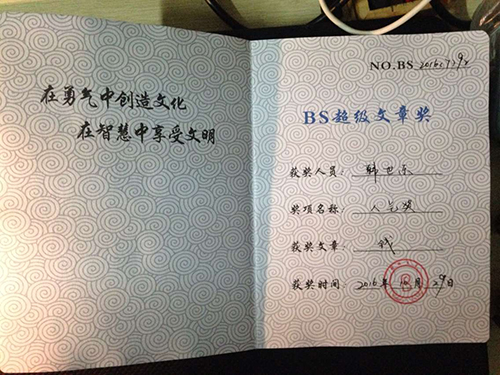 在勇气中创造文化
在智慧中享受文明
NO.BS
BS超级文章奖
获奖人员：韩世乐
奖项名称：人气奖
获奖文章：钱
获奖时间：2016年 月29日